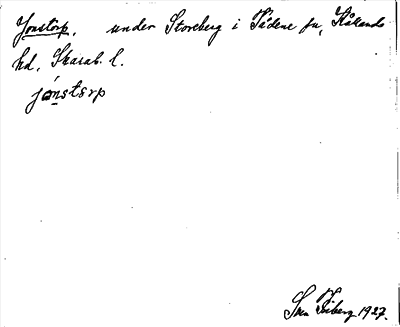 Jonstorp, under Storeberg i Tådene sn, Kålands
hd, Skarab. l.
jónstsrp
Sven 1927.